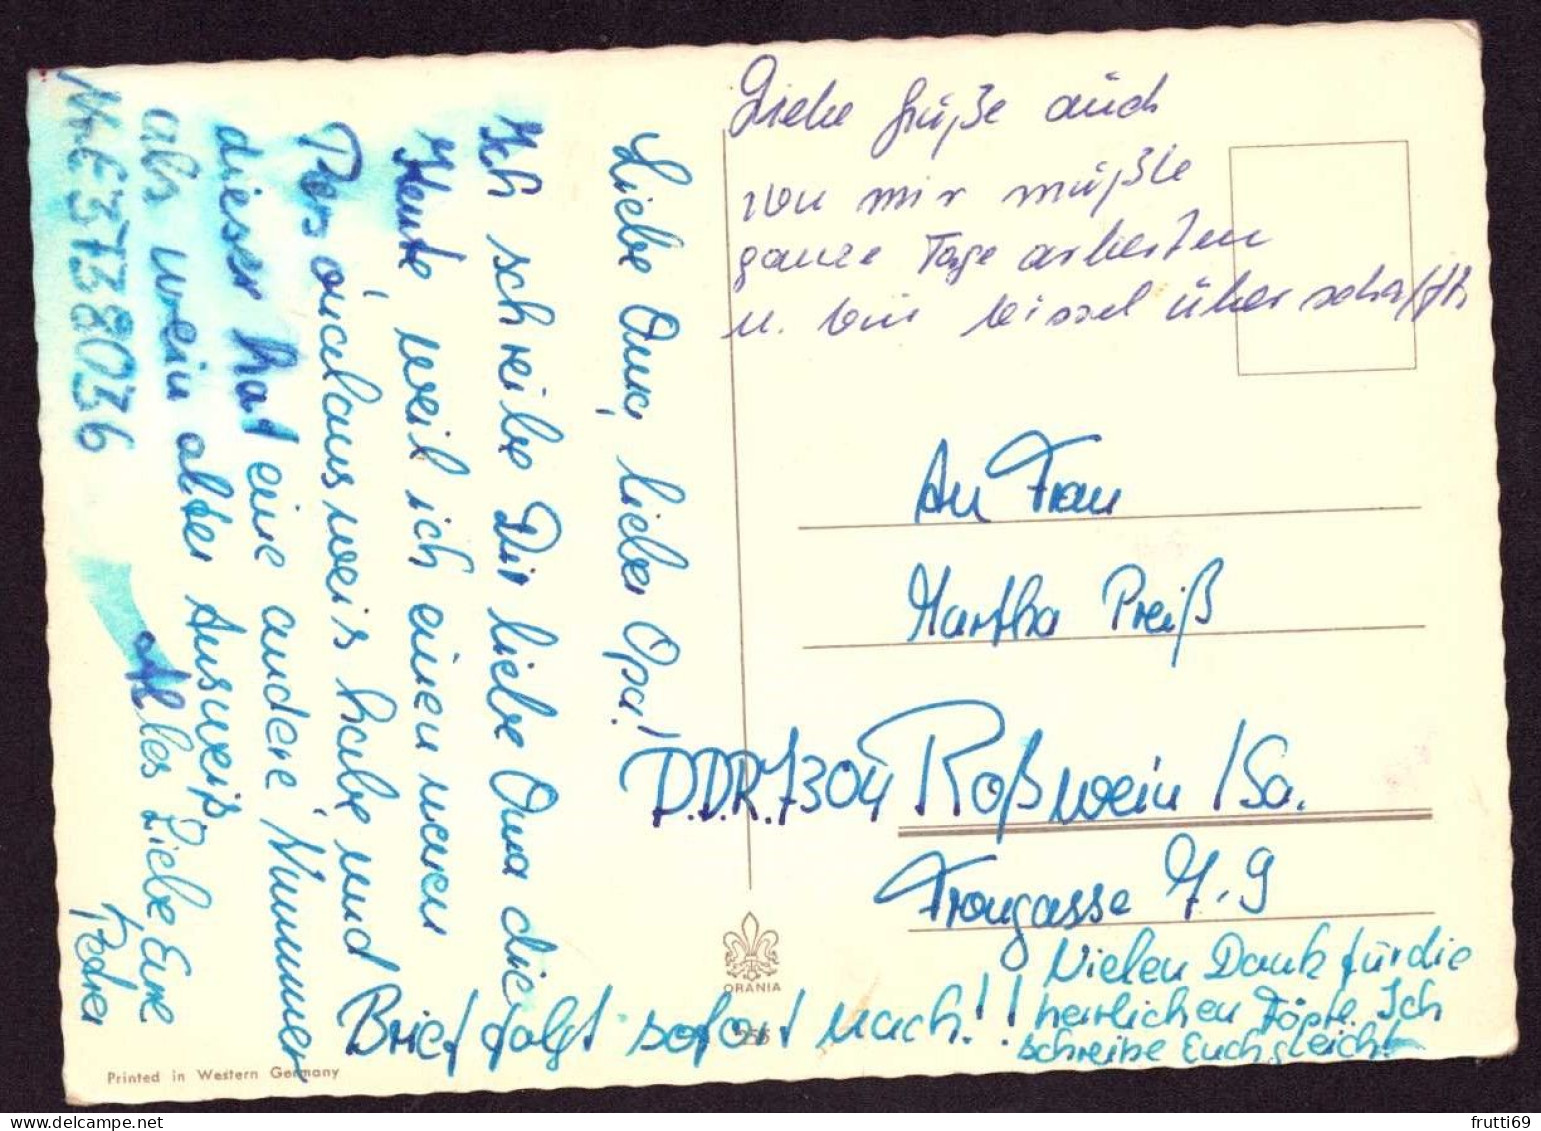 Liebe Oma, lieber Opa!
Ich schreibe Dir liebe Oma die
Heute weil ich einen neuen
Personalausweis habe und
dieser hat eine andere Nummer
als mein alter Ausweiß
Nr. E 3738036
Alles Liebe Eure
Brief folgt sofort nach!!
Liebe Grüße auch
von mir müßte
ganze Tage arbeiten
u. bin bissel überschafft
An Frau
Martha Preiß
D.D.R. 7304 Roßwein /Sa.
Frongasse 7.9
Vielen Dank für die
herrlichen Töpfe. Ich
schreibe Euch gleich!
ORANIA
255
Printed in Western Germany
frutti69